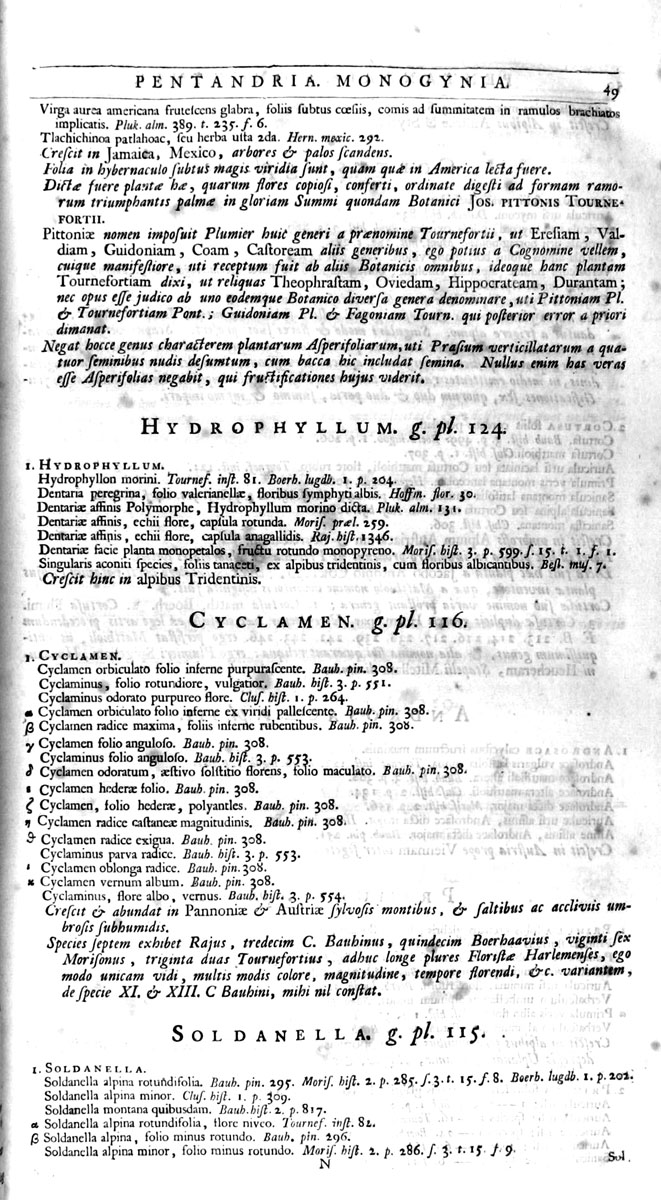 PENTANDRIA. MONOGYNIA. 49
Virga aurea americana frutescens glabra, foliis subtus cœsiis, comis ad summitatem in ramulos brachiatos
implicatis. Pluk. alm. 389. t. 235. f. 6.
Tlachichinoa patlahoac, seu herba usta 2da. Hern. mexic. 292.
Crescit in Jamaica, Mexico, arbores & palos scandens.
Folia in hybernaculo subtus magis viridia sunt, quam quæ in America lecta fuere.
Dictæ fuere plantæ hæ, quarum flores copiosi, conferti, ordinate digesti ad formam ramo-
rum triumphantis palmæ in gloriam Summi quondam Botanici JOS. PITTONIS TOURNE-
FORTII.
Pittoniæ nomen imposuit Plumier huic generi a prænomine Tournefortii, ut Eresiam, Val-
diam, Guidoniam, Coam, Castoream aliis generibus, ego potius a Cognomine vellem,
cuique manifestiore, uti receptum fuit ab aliis Botanicis omnibus, ideoque hanc plantam
Tournefortiam dixi, ut reliquas Theophrastam, Oviedam, Hippocrateam, Durantam;
nec opus esse judico ab uno eodemque Botanico diversa genera denominare, uti Pittoniam Pl.
& Tournefortiam Pont.; Guidoniam Pl. & Fagoniam Tourn. qui posterior error a priori
dimanat.
Negat hocce genus characterem plantarum Asperifoliarum, uti Prasium verticillatarum a qua-
tuor seminibus nudis desumtum, cum bacca hic includat semina. Nullus enim has veras
esse Asperifolias negabit, qui fructificationes hujus viderit.
HYDROPHYLLUM. g. pl. 124.
1. HYDROPHYLLUM.
Hydrophyllon morini. Tournef. inst. 81. Boerh. lugdb. 1. p. 204.
Dentaria peregrina, folio valerianellæ, floribus symphyti albis. Hoffm. flor. 30.
Dentariæ affinis Polymorphe, Hydrophyllum morino dicta. Pluk. alm. 131.
Dentariæ affinis, echii flore, capsula rotunda. Moris. præl. 259.
Dentariæ affinis, echii flore, capsula anagallidis. Raj. hist. 1346.
Dentariæ facie planta monopetalos, fructu rotundo monopyreno. Moris. hist. 3. p. 599. f. 15. t. 1. f. 1.
Singularis aconiti species, foliis tanaceti, ex alpibus tridentinis, cum floribus albicantibus. Besl. mus. 7.
Crescit hinc in alpibus Tridentinis.
CYCLAMEN. g. pl. 116.
1. CYCLAMEN.
Cyclamen orbiculato folio inferne purpurascente. Bauh. pin. 308.
Cyclaminus, folio rotundiore, vulgatior. Bauh. hist. 3. p. 551.
Cyclaminus odorato purpureo flore. Clus. hist. 1. p. 264.
α Cyclamen orbiculato folio inferne ex viridi pallescente. Bauh. pin. 308.
β Cyclamen radice maxima, foliis inferne rubentibus. Bauh. pin. 308.
γ Cyclamen folio anguloso. Bauh. pin. 308.
Cyclaminus folio anguloso. Bauh. hist. 3. p. 553.
δ Cyclamen odoratum, æstivo solstitio florens, folio maculato. Bauh. pin. 308.
ε Cyclamen hederæ folio. Bauh. pin. 308.
ζ Cyclamen, folio hederæ, polyantles. Bauh. pin. 308.
η Cyclamen radice castaneæ magnitudinis. Bauh. pin. 308.
ϑ Cyclamen radice exigua. Bauh. pin. 308.
Cyclaminus parva radice. Bauh. hist. 3. p. 553.
ι Cyclamen oblonga radice. Bauh. pin. 308.
κ Cyclamen vernum album. Bauh. pin. 308.
Cyclaminus, flore albo, vernus. Bauh. hist. 3. p. 554.
Crescit & abundat in Pannoniæ & Austriæ sylvosis montibus, & saltibus ac acclivüs um-
brosis subhumidis.
Species septem exhibet Rajus, tredecim C. Bauhinus, quindecim Boerhaavius, viginti sex
Morisonus, triginta duas Tournefortius, adhuc longe plures Floristæ Harlemenses, ego
modo unicam vidi, multis modis colore, magnitudine, tempore florendi, &c. variantem,
de specie XI. & XIII. C Bauhini, mihi nil constat.
SOLDANELLA. g. pl. 115.
1. SOLDANELLA.
Soldanella alpina rotundifolia. Bauh. pin. 295. Moris. hist. 2. p. 285. f. 3. t. 15. f. 8. Boerh. lugdb. 1. p. 202.
Soldanella alpina minor. Clus. hist. 1. p. 309.
Soldanella montana quibusdam. Bauh. hist. 2. p. 817.
α Soldanella alpina rotundifolia, flore niveo. Tournef. inst. 82.
β Soldanella alpina, folio minus rotundo. Bauh. pin. 296.
Soldanella alpina minor, folio minus rotundo. Moris. hist. 2. p. 286. f. 3. t. 15. f. 9.
N Sol